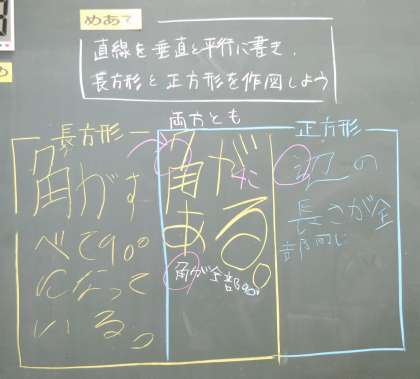 めあて
直線を垂直と平行に書き、
長方形と正方形を作図しよう
両方とも
長方形
正方形
角がす
べて90°
になって
いる。
角が
ある。
角が全部90°
辺の
長さが全
部同じ